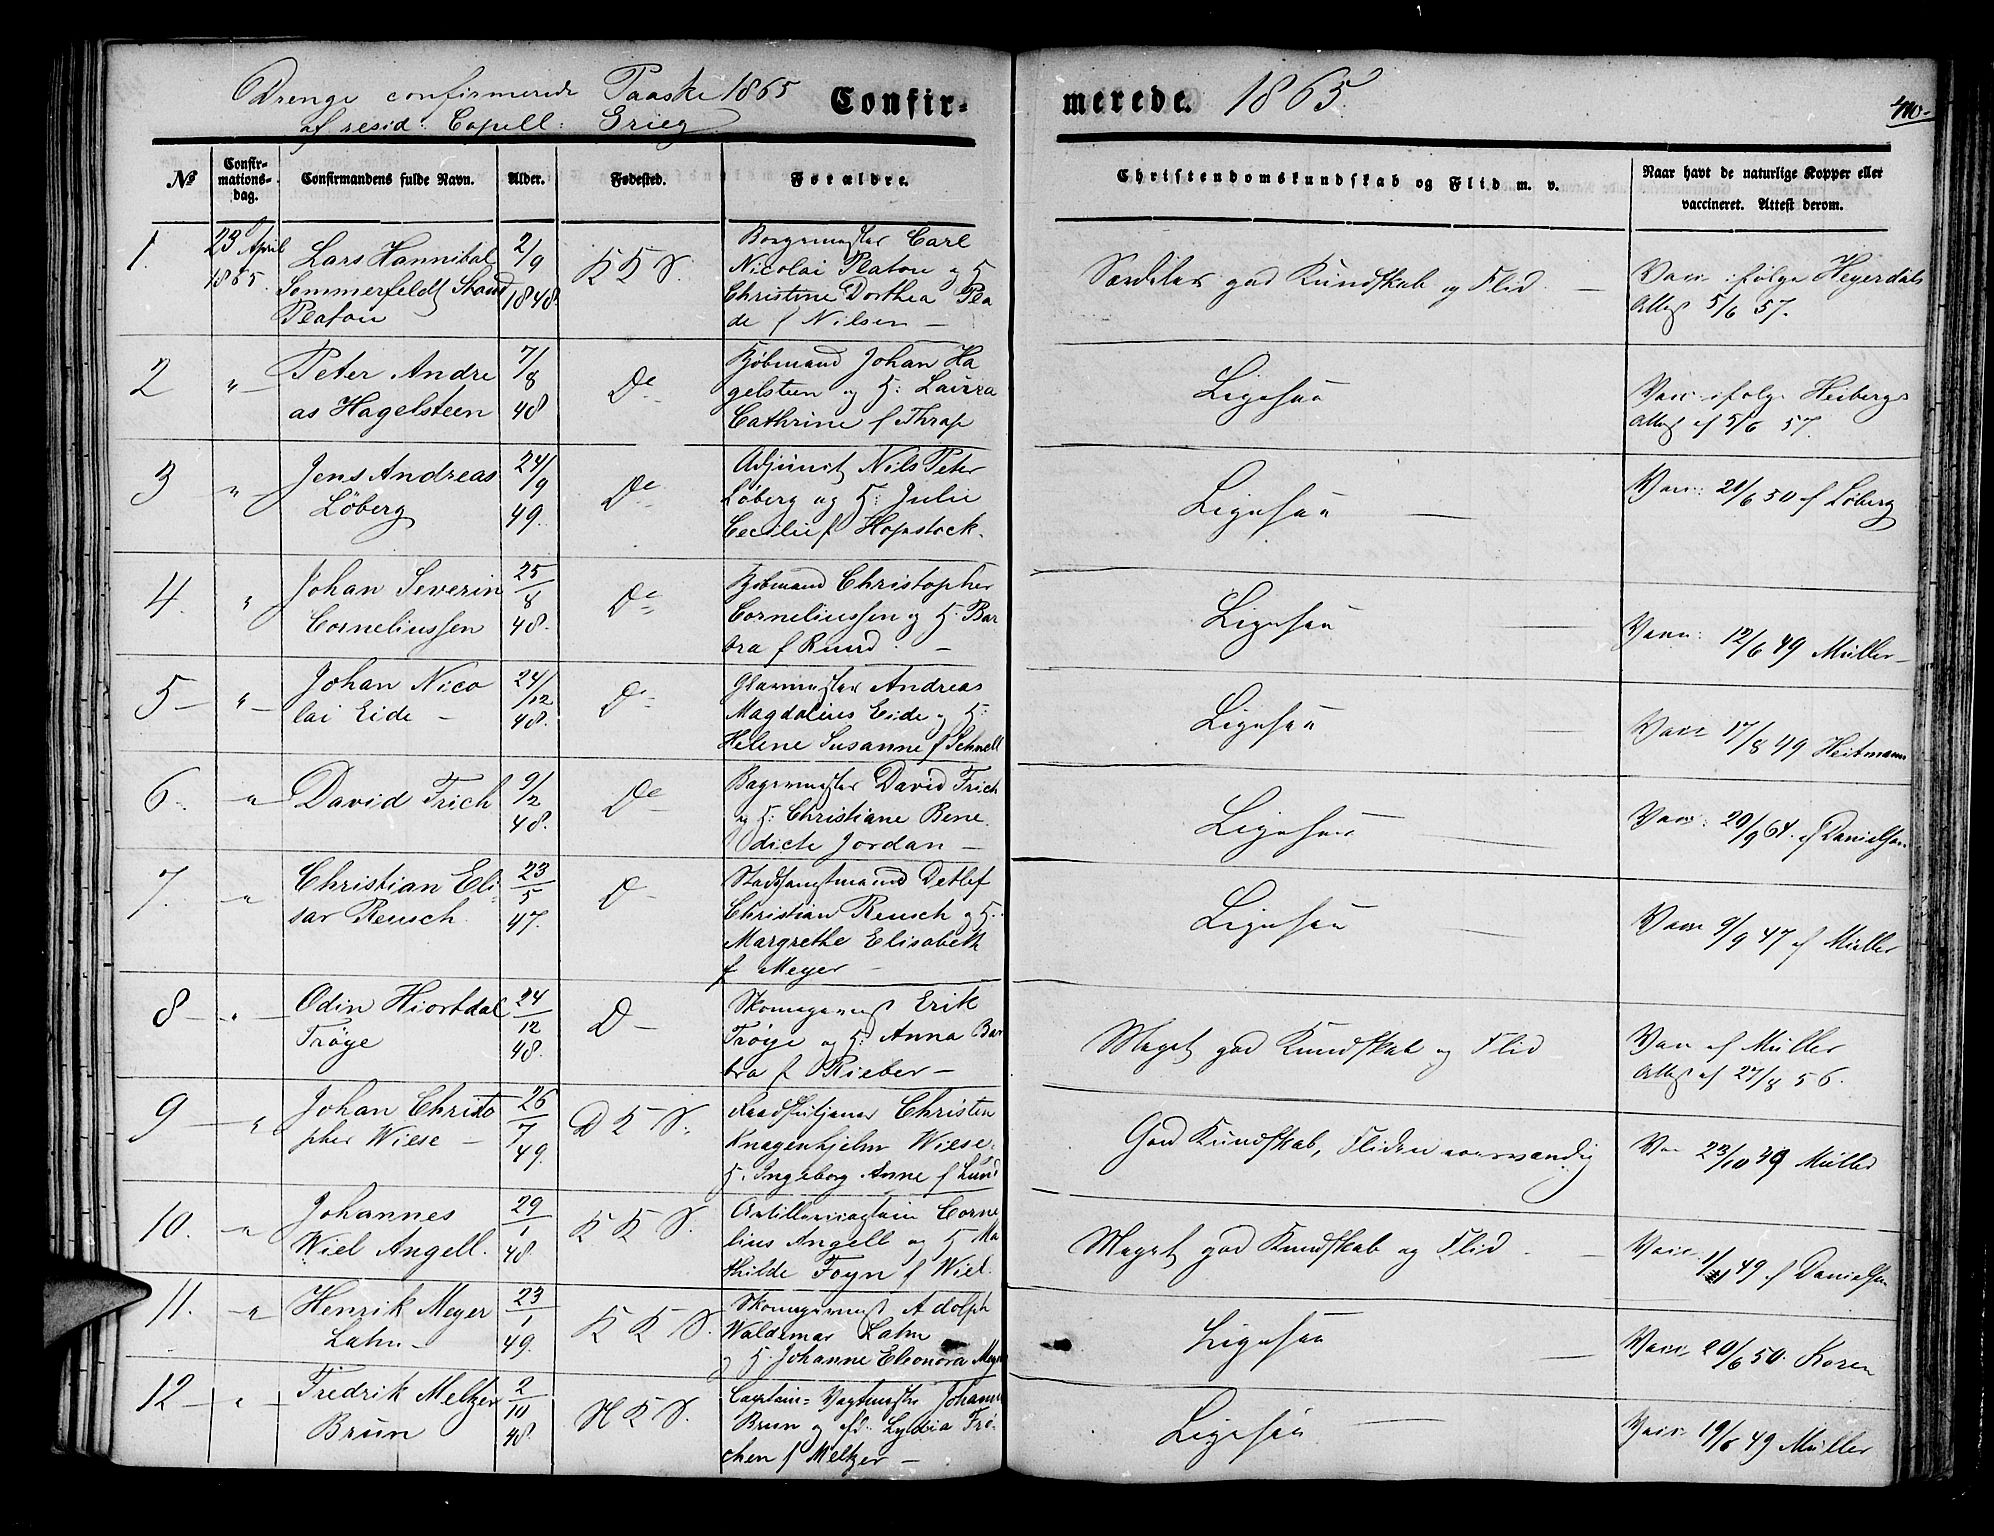 Drenge confirmerede Paaske 1865
af resid: Capell: Grieg
Confir-
merede. 1865.
No
Confir-
mations-
dag.
Confirmandens fulde Navn.
Alder.
Fødested.
Forældre.
Christendomskundskab og Flid m. v.
Naar havt de naturlige Kopper eller
vaccineret. Attest derom.
1.
23 April
1865.
Lars Hannibal
Sommerfeldt
Platou
2/9
1848.
K K S.
Borgermester Carl
Nicolai Platou og H
Christine Dorthea Pla
de f Nilsen —
Særdeles god Kundskab og Flid. —
Vacc. ifølge Heyerdals
Attest 5/6 57.
2
"
Peter Andre
as Hagelsteen
7/8
48
De
Kjøbmand Johan Ha
gelsteen og H: Laura
Cathrine f Thrap
Ligesaa
Vacc. ifølge Heibergs
Attest af 5/6 57.
3
"
Jens Andreas
Løberg
24/9
49.
De
Adjunct Nils Peter
Løberg og H: Julie
Cecilie f Hopstock.
Ligesaa —
Vacc: 21/6 50 af Løberg
4.
"
Johan Severin
Corneliussen
25/8
48.
De
Kjøbmand Christopher
Corneliussen og H. Bar
bra f Ruud. —
Ligesaa —
Vacc: 12/6 49 Müller —
5 —
"
Johan Nico
lai Eide —
24/12
48.
De
Glarmester Andreas
Magdalius Eide og H:
Helene Susanne f Schnell
Ligesaa —
Vacc 17/8 49 Heitmann
6.
"
David Frich
9/2
48.
De
Bagermester David Frich
og H: Christiane Bene
dicte Jordan —
Ligesaa —
Vacc: 20/9 64. af Danielsen
7.
"
Christian Eli
sar Reusch.
23/5
47.
D
Stadshauptmand Detlef
Christian Reusch og H.
Margrethe Elisabeth
f Meyer —
Ligesaa —
Vacc 9/9 47 af Müller
8
"
Odin Hiortdal
Trøye
24/12
48.
D —
Skomagermest Erik
Trøye og H: Anna Bar
bra f Rieber —
Meget god Kundskab og Flid
Vacc af Müller
Attest af 27/8 56.
9
"
Johan Christo
pher Wiese —
26/7
49.
D K S.
Christen
Knagenhjelm Wiese.
H. Ingeborg Anne f Lund
God Kundskab, Fliden
Vac 23/10 49 Müller
10.
"
Johannes
Wiel Angell.
29/1
48.
K K S.
Artillericaptain Corne
lius Angell og H Ma
thilde Foyn f Wiel.
Meget god Kundskab og Flid. —
Vacc 49 af Danielsen
11.
"
Henrik Meyer
Lahn —
23/1
49.
K K S.
Skomagermest Adolph
Waldemar Lahn
og H. Johanne Eleonora Meyer
Ligesaa —
Vacc. 20/6 50. Koren
12 —
"
Fredrik Meltzer
Brun
2/10
48.
N K S.
Captain= Vagtmester Johann
Brun og afd. Lydia Frø-
chen f Meltzer —
Ligesaa —
Vacc 19/6 49 Müller